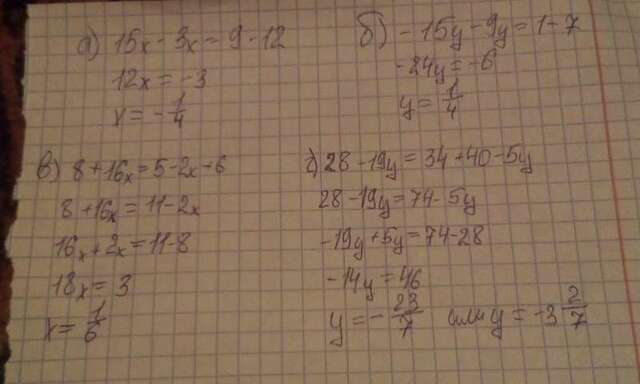 а) 15x - 3x = 9 - 12
12x = -3
x = -1/4
б) -15y - 9y = 1 - 7
-24y = -6
y = 1/4
в) 8 + 16x = 5 - 2x + 6
8 + 16x = 11 - 2x
16x + 2x = 11 - 8
18x = 3
x = 1/6
г) 28 - 19y = 34 + 40 - 5y
28 - 19y = 74 - 5y
-19y + 5y = 74 - 28
-14y = 46
y = -23/7 или y = -3 2/7